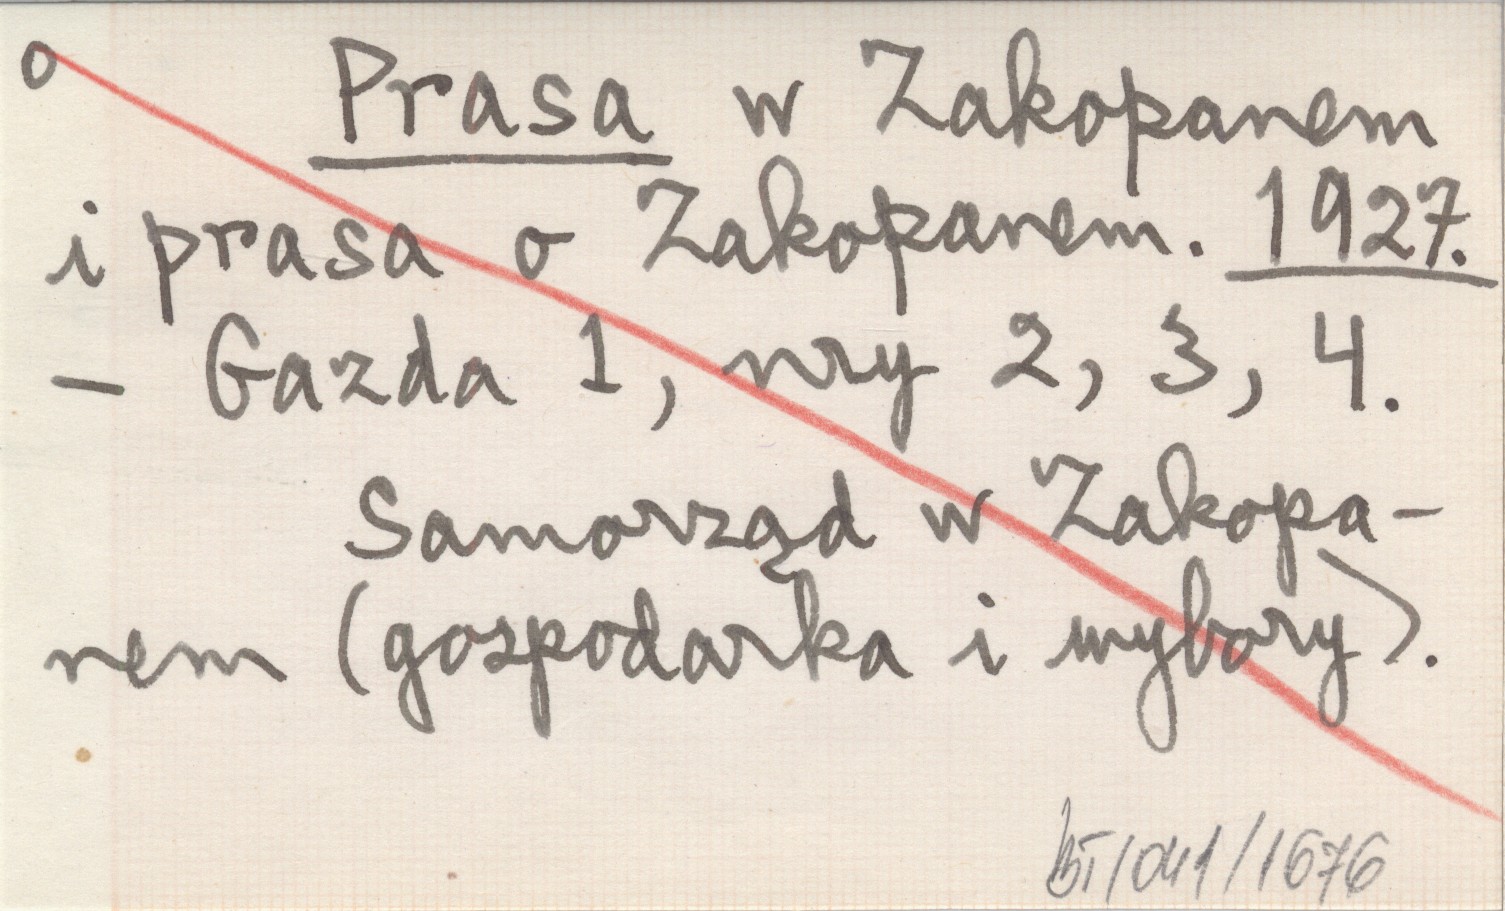 o Prasa w Zakopanem
i prasa o Zakopanem. 1927.
- Gazda 1, nry 2, 3, 4.
Samorząd w Zakopa-
nem (gospodarka i wybory).
/041/1676